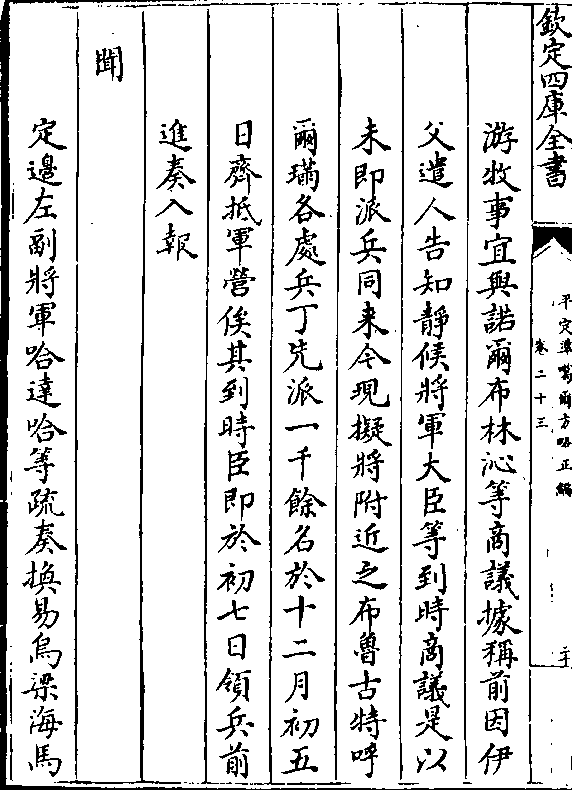 欽定四庫全書
平定準噶爾方略正編
卷二十三
游牧事宜與諾爾布林沁等商議據稱前因伊
父遣人告知靜候將軍大臣等到時商議是以
未即派兵同来今現擬將附近之布魯古特呼
爾璊各處兵丁先派一千餘名於十二月初五
日齊抵軍營俟其到時臣即於初七日領兵前
進奏入報
聞
定邊左副將軍哈達哈等疏奏換易烏梁海馬